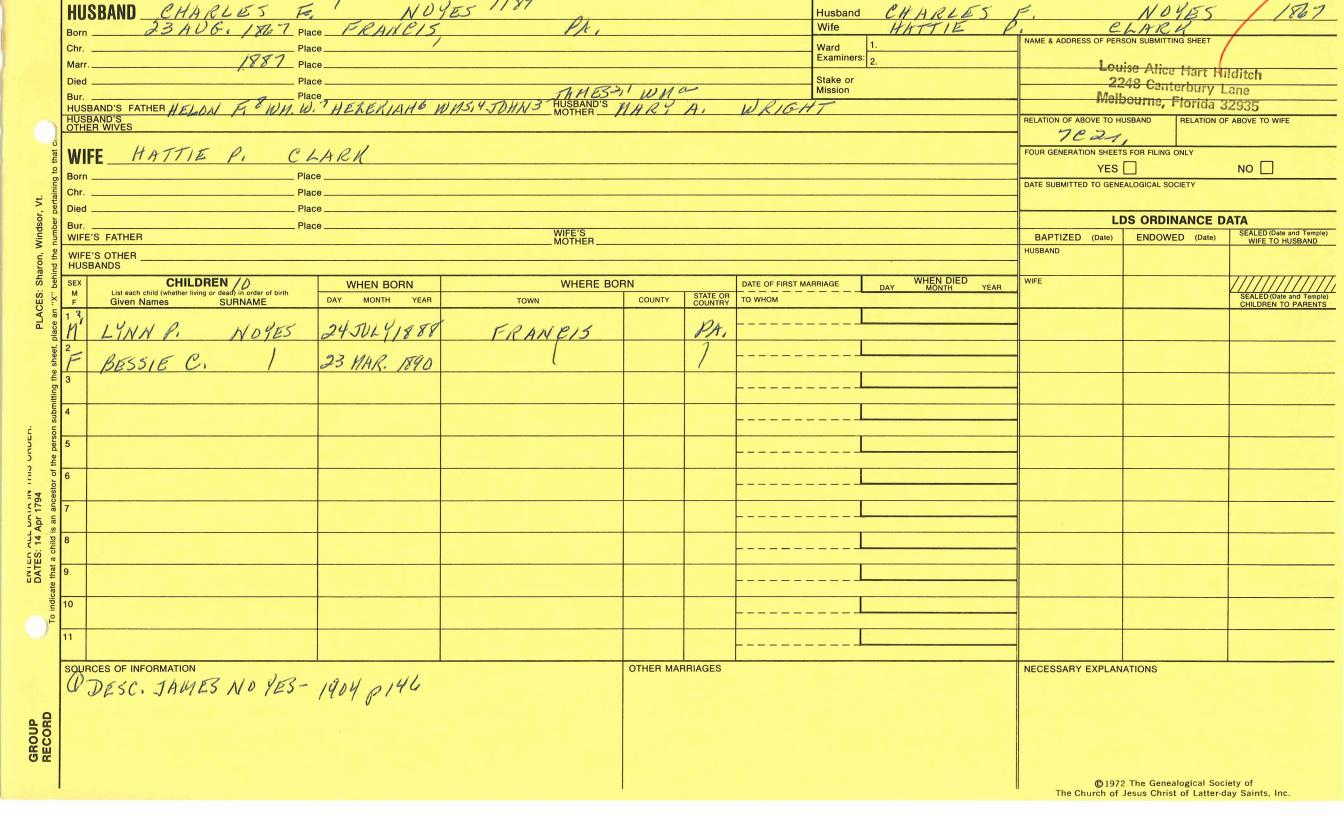 HUSBAND CHARLES F. NOYES
Born 23 AUG. 1867 Place FRANCIS PA.
Chr. Place
Marr. 1887 Place
Died Place
Bur. Place
JAMES WM
HUSBAND'S FATHER HELON F.8 WM. W.7 HEZEKIAH6 WM5,4 JOHN3 HUSBAND'S MOTHER MARY A. WRIGHT
HUSBAND'S OTHER WIVES
WIFE HATTIE P. CLARK
Born Place
Chr. Place
Died Place
Bur. Place
WIFE'S FATHER WIFE'S MOTHER
WIFE'S OTHER HUSBANDS
Husband CHARLES F. NOYES 1867
Wife HATTIE P. CLARK
Ward Examiners: 1.
2.
Stake or Mission
NAME & ADDRESS OF PERSON SUBMITTING SHEET
Louise Alice Hart Hilditch
2248 Canterbury Lane
Melbourne, Florida 32935
RELATION OF ABOVE TO HUSBAND RELATION OF ABOVE TO WIFE
7C2r,
FOUR GENERATION SHEETS FOR FILING ONLY
YES NO
DATE SUBMITTED TO GENEALOGICAL SOCIETY
LDS ORDINANCE DATA
BAPTIZED (Date) ENDOWED (Date) SEALED (Date and Temple) WIFE TO HUSBAND
HUSBAND
WIFE
SEALED (Date and Temple) CHILDREN TO PARENTS
SEX M F
CHILDREN 10
List each child (whether living or dead) in order of birth
Given Names SURNAME
WHEN BORN
DAY MONTH YEAR
WHERE BORN
TOWN COUNTY STATE OR COUNTRY
DATE OF FIRST MARRIAGE
TO WHOM
WHEN DIED
DAY MONTH YEAR
1 M LYNN P. NOYES 24 JULY 1888 FRANCIS PA.
2 F BESSIE C. 23 MAR. 1890
3
4
5
6
7
8
9.
10
11
SOURCES OF INFORMATION
① DESC. JAMES NOYES- 1904 p146
OTHER MARRIAGES
NECESSARY EXPLANATIONS
©1972 The Genealogical Society of
The Church of Jesus Christ of Latter-day Saints, Inc.
PLACES: Sharon, Windsor, Vt.
DATES: 14 Apr 1794
To indicate that a child is an ancestor of the person submitting the sheet, place an "X" behind the number pertaining to that c
GROUP RECORD